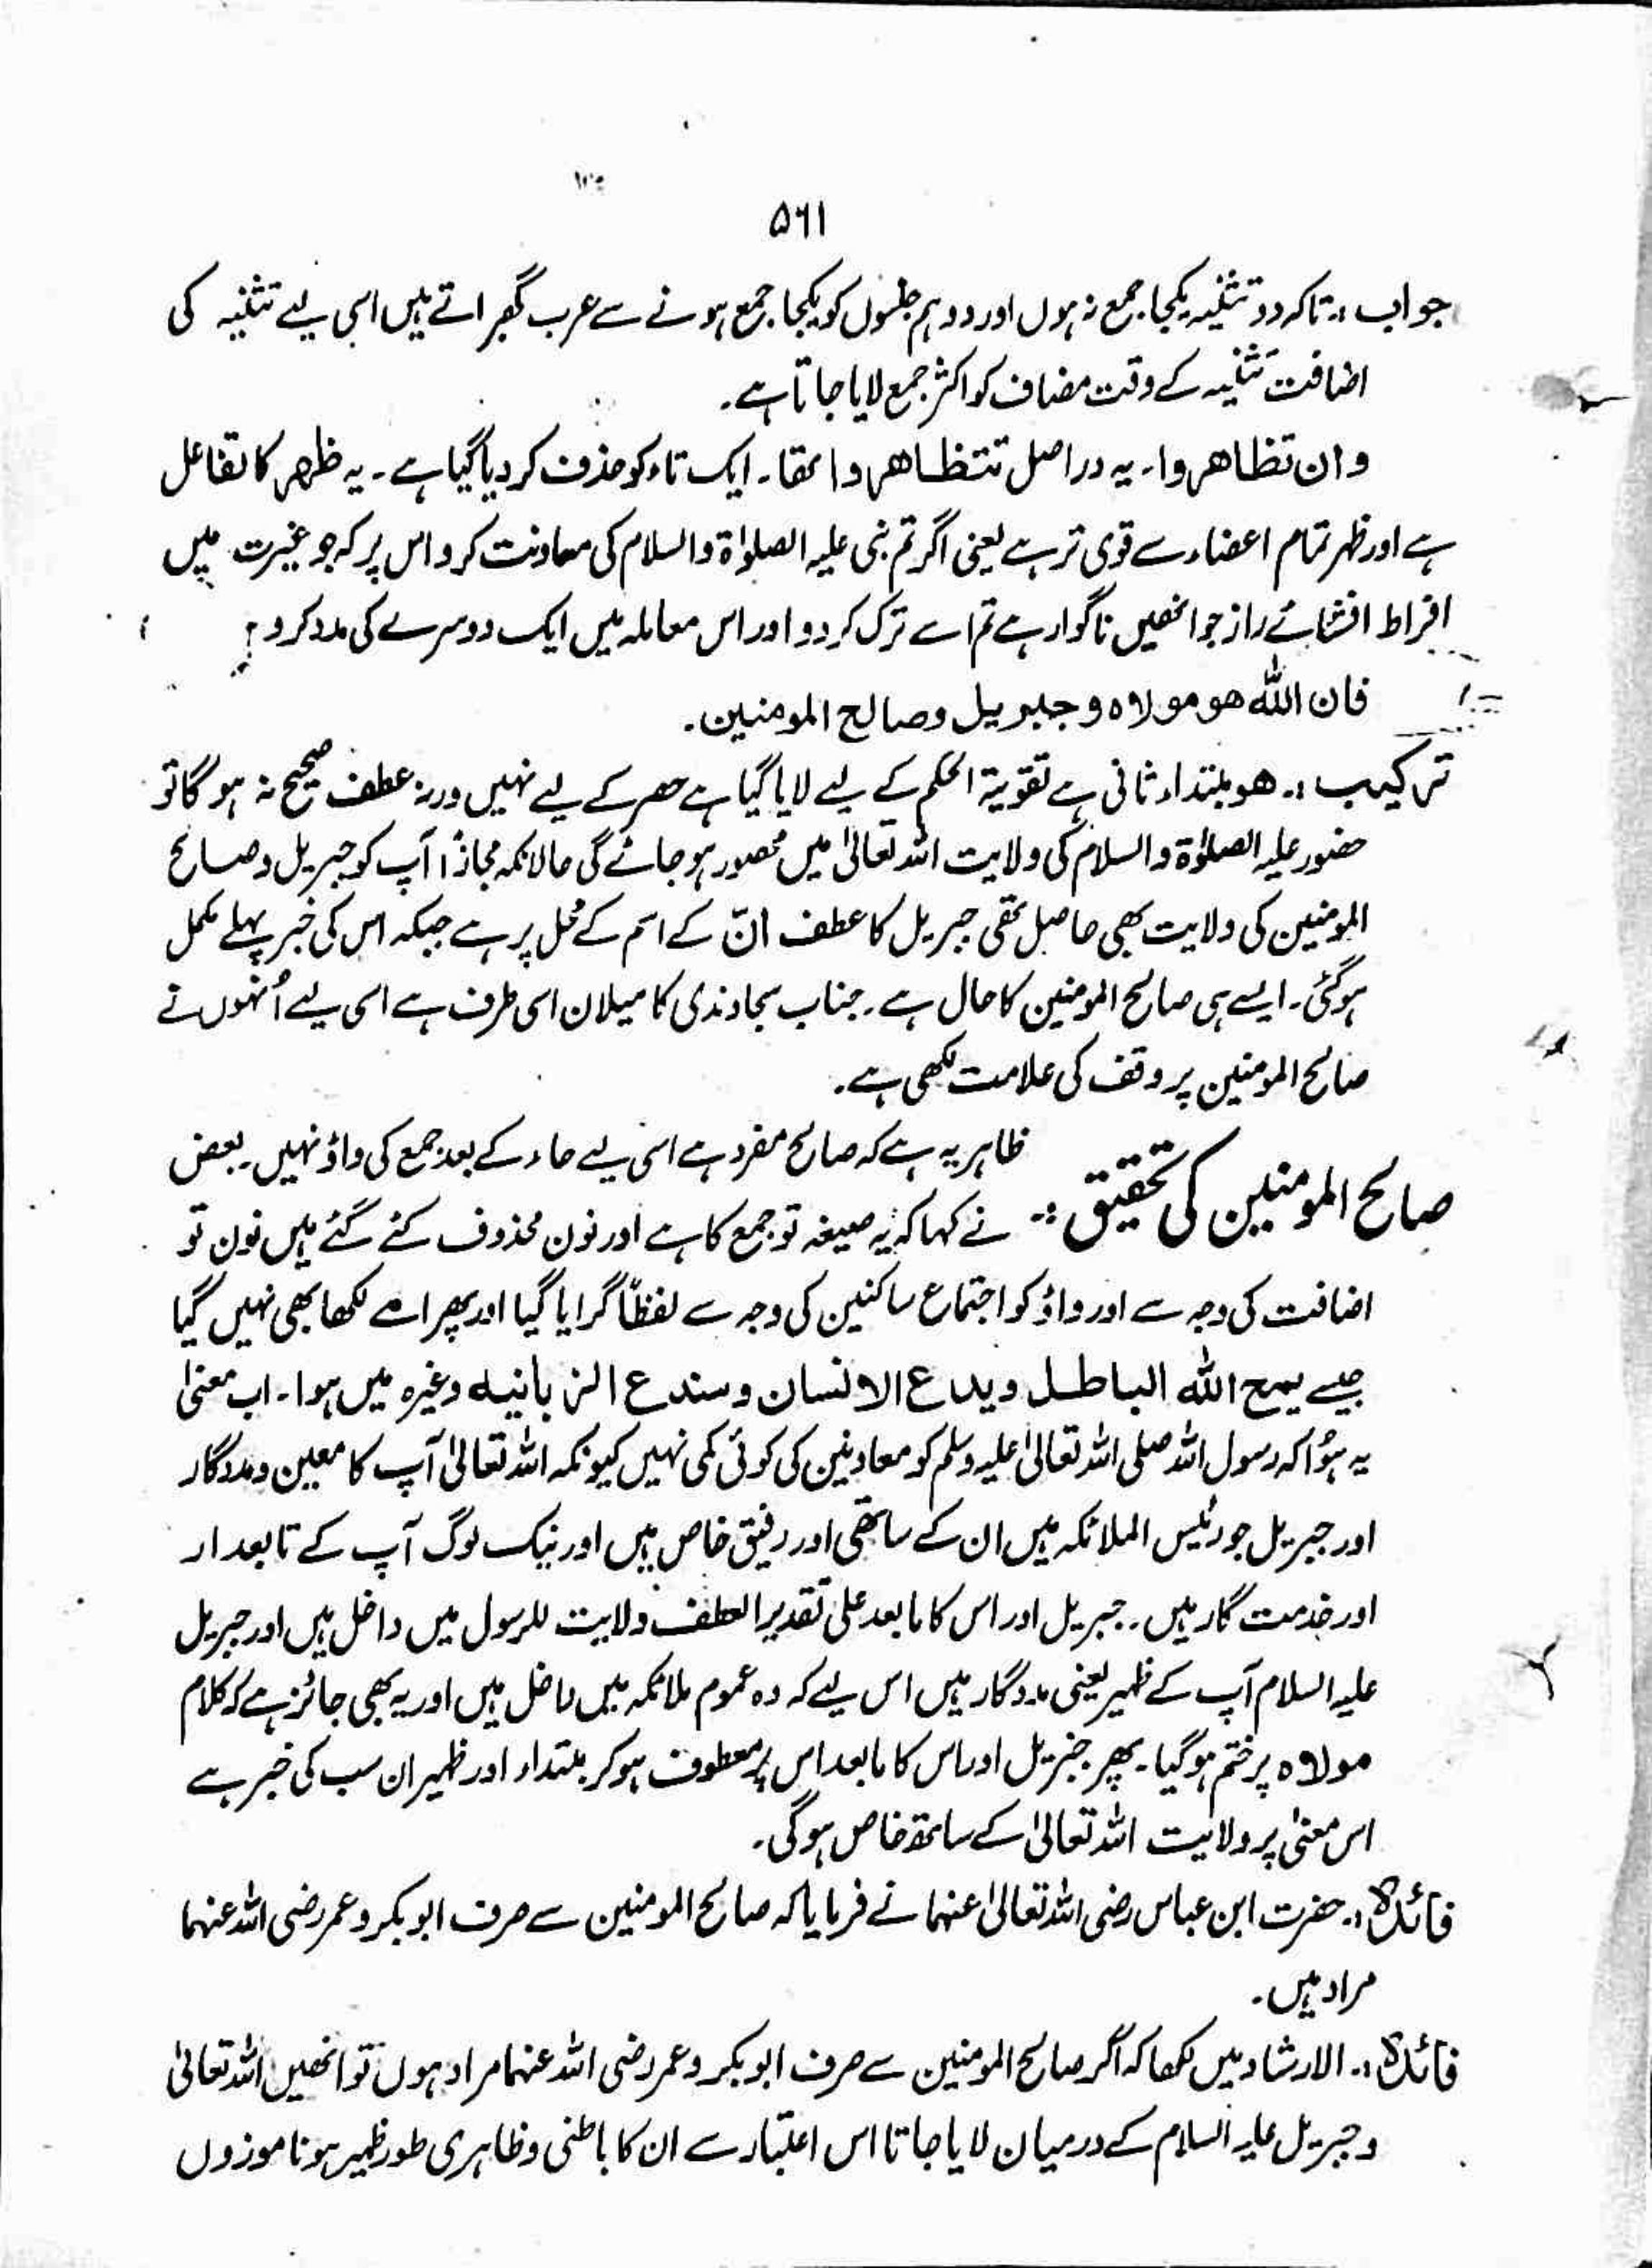 ۵۶۱
جواب :۔ تاکہ دو تثنیہ یکجا جمع نہ ہوں اور دو ہم جنسوں کو یکجا جمع ہونے سے عرب گھبراتے ہیں اسی لیے تثنیہ کی
اضافت تثنیہ کے وقت مضاف کو اکثر جمع لایا جاتا ہے۔
وان تظاھروا۔ یہ دراصل تتظاھروا تھا۔ ایک تاء کو حذف کر دیا گیا ہے۔ یہ ظھر کا تفاعل
ہے اور ظہر تمام اعضاء سے قوی تر ہے یعنی اگر تم نبی علیہ الصلوٰۃ والسلام کی معاونت کرو اس پر کہ جو غیرت میں
افراط افشائے راز جو انھیں ناگوار ہے تم اسے ترک کر دو اور اس معاملہ میں ایک دوسرے کی مدد کرو
فان اللّٰہ ھو مولاہ وجبریل وصالح المومنین۔
ترکیب :۔ ھو مبتداء ثانی ہے تقویۃ الحکم کے لیے لایا گیا ہے حصر کے لیے نہیں ورنہ عطف صحیح نہ ہوگا تو
حضور علیہ الصلوٰۃ والسلام کی ولایت اللہ تعالیٰ میں محصور ہو جائے گی حالانکہ مجازاً آپ کو جبریل و صالح
المومنین کی ولایت بھی حاصل تھی جبریل کا عطف انّ کے اسم کے محل پر ہے جبکہ اس کی خبر پہلے مکمل
ہو گئی۔ ایسے ہی صالح المومنین کا حال ہے۔ جناب سجاوندی کا میلان اسی طرف ہے اسی لیے اُنہوں نے
صالح المومنین پر وقف کی علامت لکھی ہے۔
صالح المومنین کی تحقیق :۔ ظاہر یہ ہے کہ صالح مفرد ہے اسی لیے حاء کے بعد جمع کی واؤ نہیں۔ بعض
نے کہا کہ یہ صیغہ تو جمع کا ہے اور نون محذوف کئے گئے ہیں نون تو
اضافت کی وجہ سے اور واؤ کو اجتماع ساکنین کی وجہ سے لفظاً گرایا گیا اور پھر اسے لکھا بھی نہیں گیا
جیسے یمح اللّٰہ الباطل ویدع الانسان وسندع الزبانیہ وغیرہ میں ہوا۔ اب معنیٰ
یہ ہُوا کہ رسول اللہ صلی اللہ تعالیٰ علیہ وسلم کو معاونین کی کوئی کمی نہیں کیونکہ اللہ تعالیٰ آپ کا معین و مددگار
اور جبریل جو رئیس الملائکہ ہیں ان کے ساتھی اور رفیق خاص ہیں اور نیک لوگ آپ کے تابعدار
اور خدمت گار ہیں۔ جبریل اور اس کا مابعد علی تقدیر العطف ولایت للرسول میں داخل ہیں اور جبریل
علیہ السلام آپ کے ظہیر یعنی مددگار ہیں اس لیے کہ وہ عموم ملائکہ میں داخل ہیں اور یہ بھی جائز ہے کہ کلام
مولاہ پر ختم ہو گیا۔ پھر جبریل اور اس کا مابعد اس پر معطوف ہو کر مبتداء اور ظہیر ان سب کی خبر ہے
اس معنیٰ پر ولایت اللہ تعالیٰ کے ساتھ خاص ہوگی۔
فائدہ :۔ حضرت ابن عباس رضی اللہ تعالیٰ عنہما نے فرمایا کہ صالح المومنین سے صرف ابوبکر و عمر رضی اللہ عنہما
مراد ہیں۔
فائدہ :۔ الارشاد میں لکھا کہ اگر صالح المومنین سے صرف ابوبکر و عمر رضی اللہ عنہما مراد ہوں تو انھیں اللہ تعالیٰ
و جبریل علیہ السلام کے درمیان لایا جاتا اس اعتبار سے ان کا باطنی و ظاہری طور ظہیر ہونا موزوں